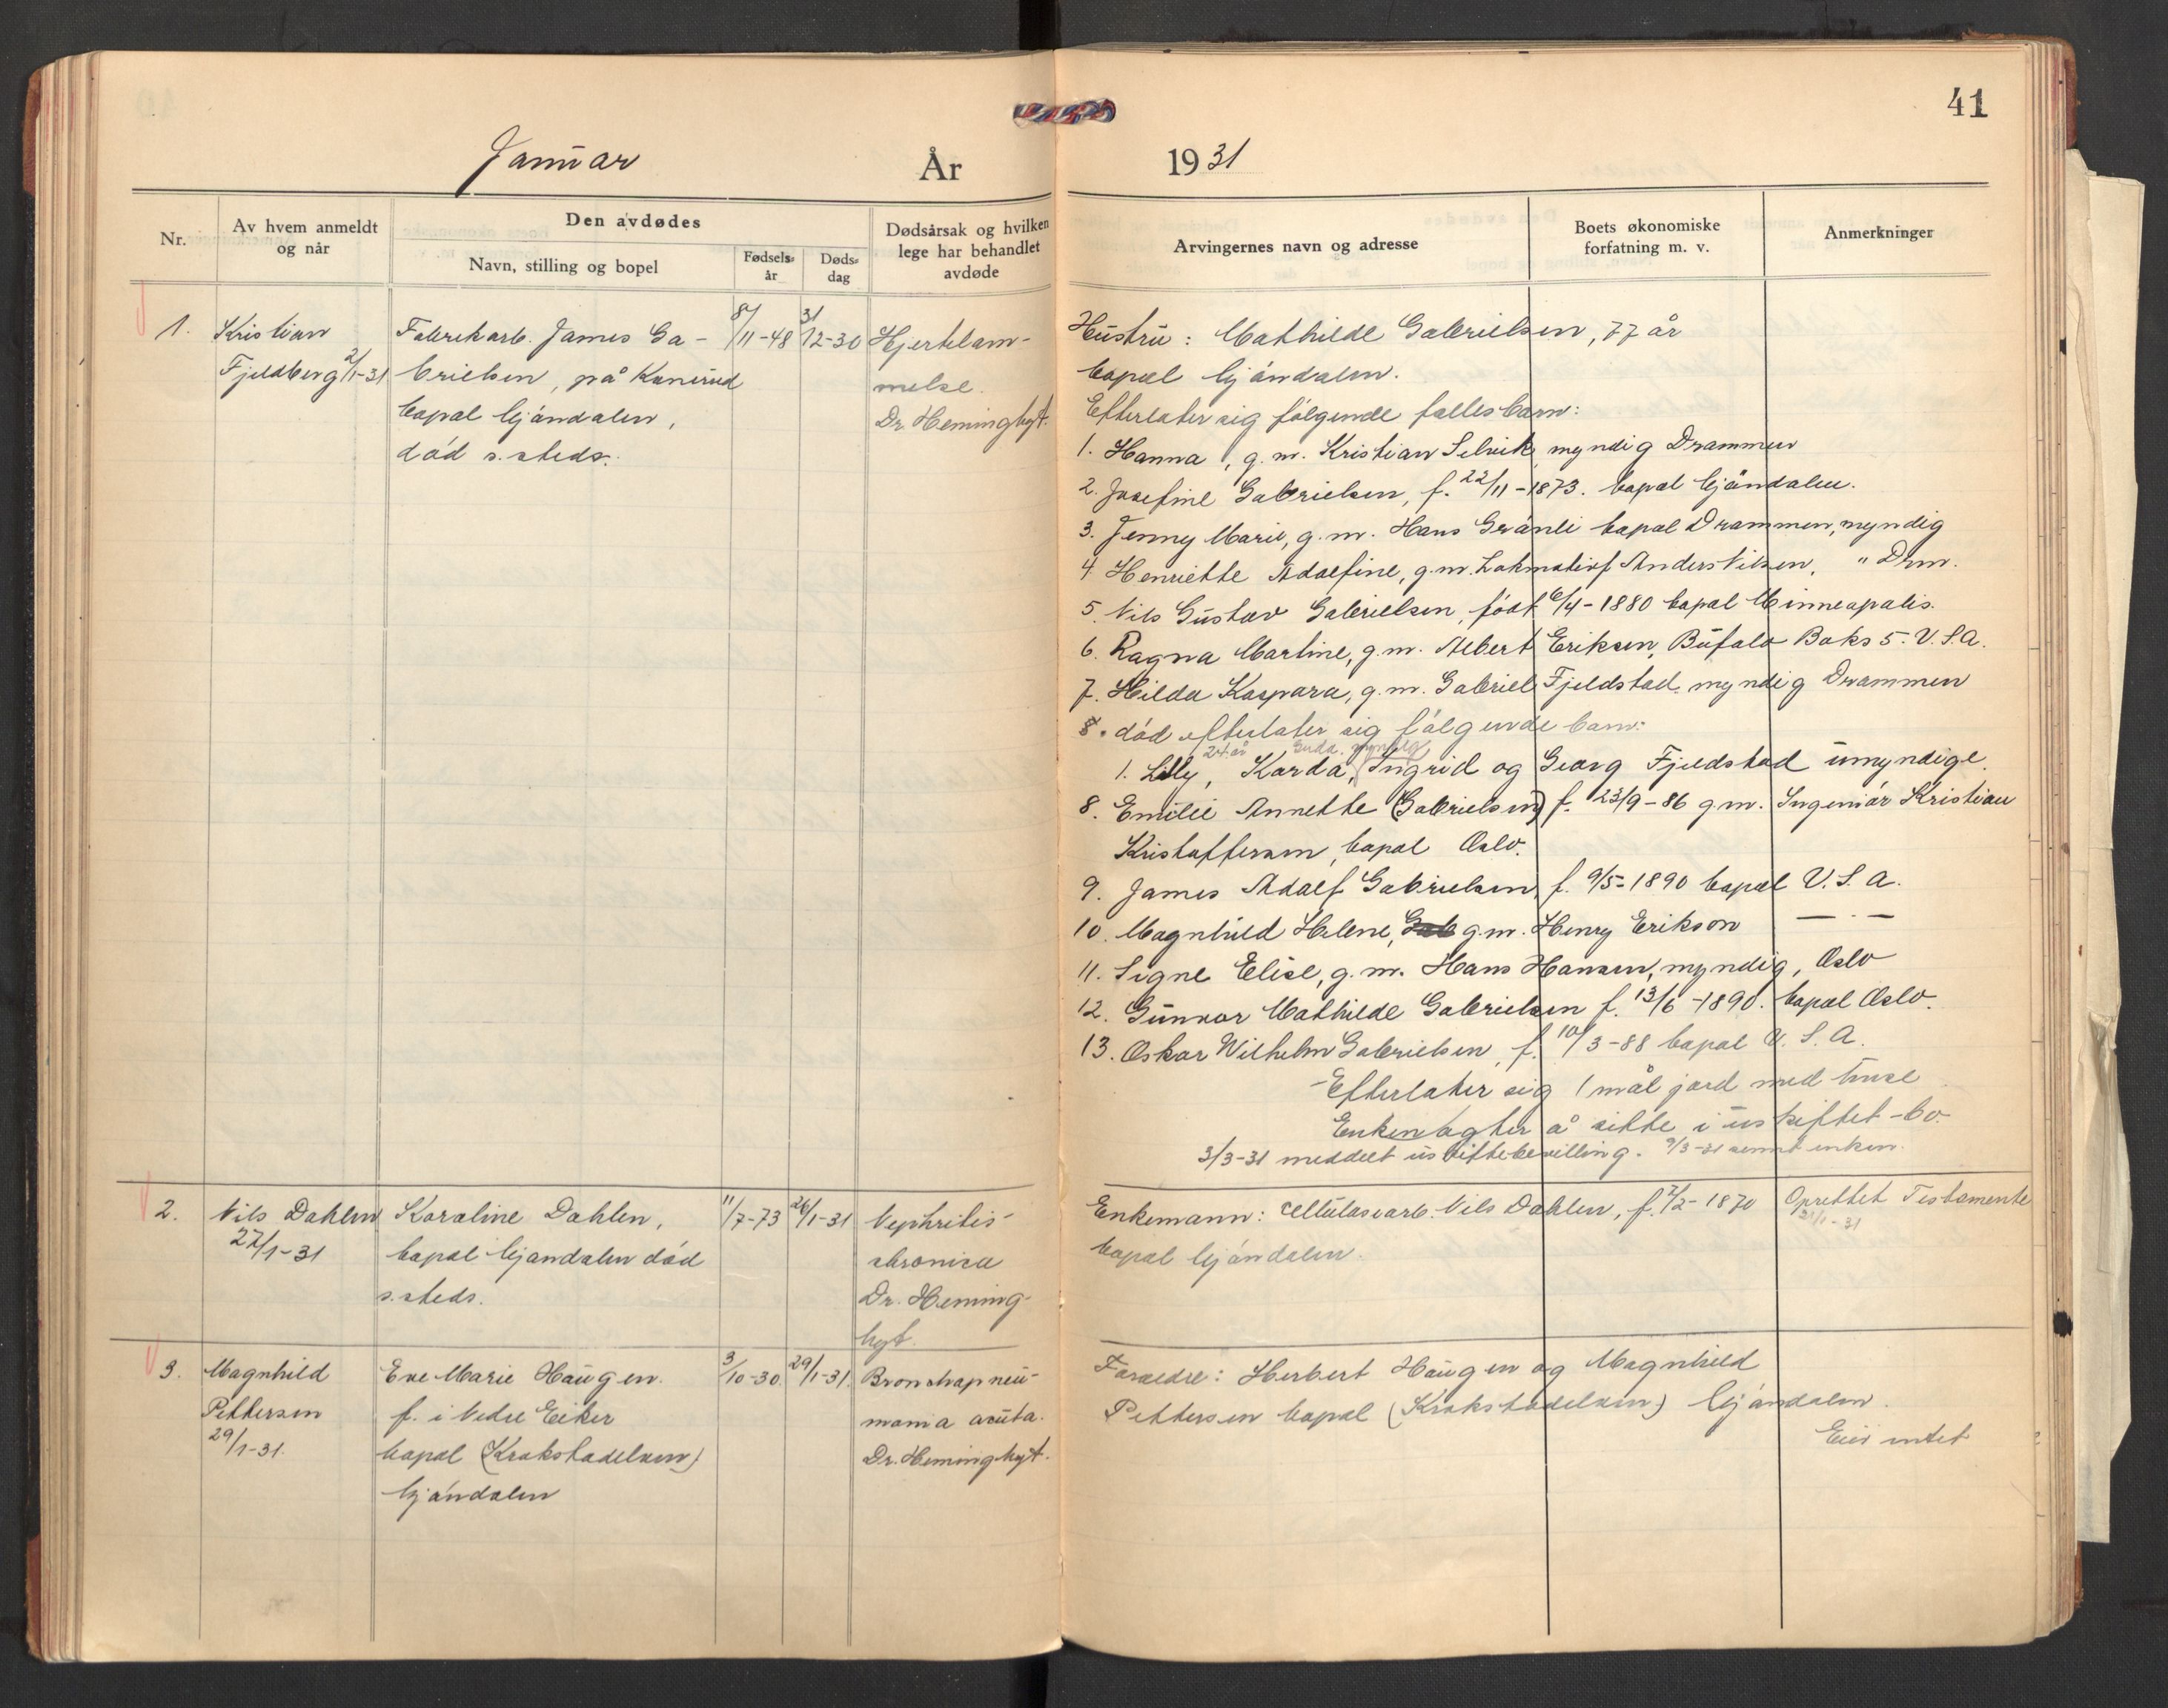 41
Januar År 1931
Nr.
Av hvem anmeldt
og når
Den avdødes
Navn, stilling og bopel
Fødsels-
år
Døds-
dag
Dødsårsak og hvilken
lege har behandlet
avdøde
Arvingernes navn og adresse
Boets økonomiske
forfatning m. v.
Anmerkninger
1.
Kristian
Fjeldberg 2/1-31
Fabrikarb. James Ga-
brielsen, på Kanerud
bopel Mjøndalen,
død s. steds.
8/11-48
31/12-30
Hjertelam-
melse.
Dr. Heminghyt.
Hustru: Mathilde Gabrielsen, 77 år
bopel Mjøndalen.
Efterlater sig følgende fellesbarn:
1. Hanna, g. m. Kristian Selvik, myndig Drammen
2. Josefine Gabrielsen, f. 22/11-1873. bopel Mjøndalen.
3. Jenny Marie, g. m. Hans Grønli bopel Drammen, myndig
4 Henriette Adolfine, g.m. Lokmotivf Anders Nilsen, " Drm.
5. Nils Gustav Gabrielsen, født 6/4-1880 bopel Minneapolis.
6. Ragna Martine, g.m. Albert Eriksen, Bufalo Boks 5. U.S.A.
7. Hilda Kaspara, g.m. Gabriel Fjeldstad, myndig Drammen
8. død efterlater sig følgende barn:
24 år myndig
1. Lilly, Karda, Ingrid og Georg Fjeldstad umyndige.
8. Emilie Annette (Gabrielsen) f. 23/9-86 g.m. Ingeniør Kristian
Kristoffersen, bopel Oslo.
9. James Adolf Gabrielsen, f. 9/5-1890 bopel U. S. A.
10. Magnhild Helene, Gab g.m. Henry Erikson — · —
11. Signe Elise, g. m. Hans Hansen, myndig, Oslo
12. Gunvor Mathilde Gabrielsen f. 13/6-1890. bopel Oslo.
13. Oskar Wilhelm Gabrielsen, f. 10/3-88 bopel U. S. A.
Efterlater sig 1 mål jord med huse
Enken agter å sitte i uskiftet bo.
3/3-31 meddelt uskiftebevilling. 9/3-31 sennt enken.
2.
Nils Dahlen
27/1-31
Karoline Dahlen,
bopel Mjøndalen død
s. steds.
11/7-73
26/1-31
Nephritis
chronica
Dr. Heming-
hyt.
Enkemann: Cellulosearb. Nils Dahlen, f. 7/2-1870
bopel Mjøndalen.
Oprettet Testamente
3.
Magnhild
Pettersen
29/1-31.
Eva Marie Haugen.
f. i Nedre Eiker
bopel (Krokstadelven)
Mjøndalen
3/10-30.
29/1-31.
Bronchopneu-
monia acuta.
Dr. Heminghyt.
Foreldre: Herbert Haugen og Magnhild
Pettersen bopel (Krokstadelven) Mjøndalen.
Eier intet